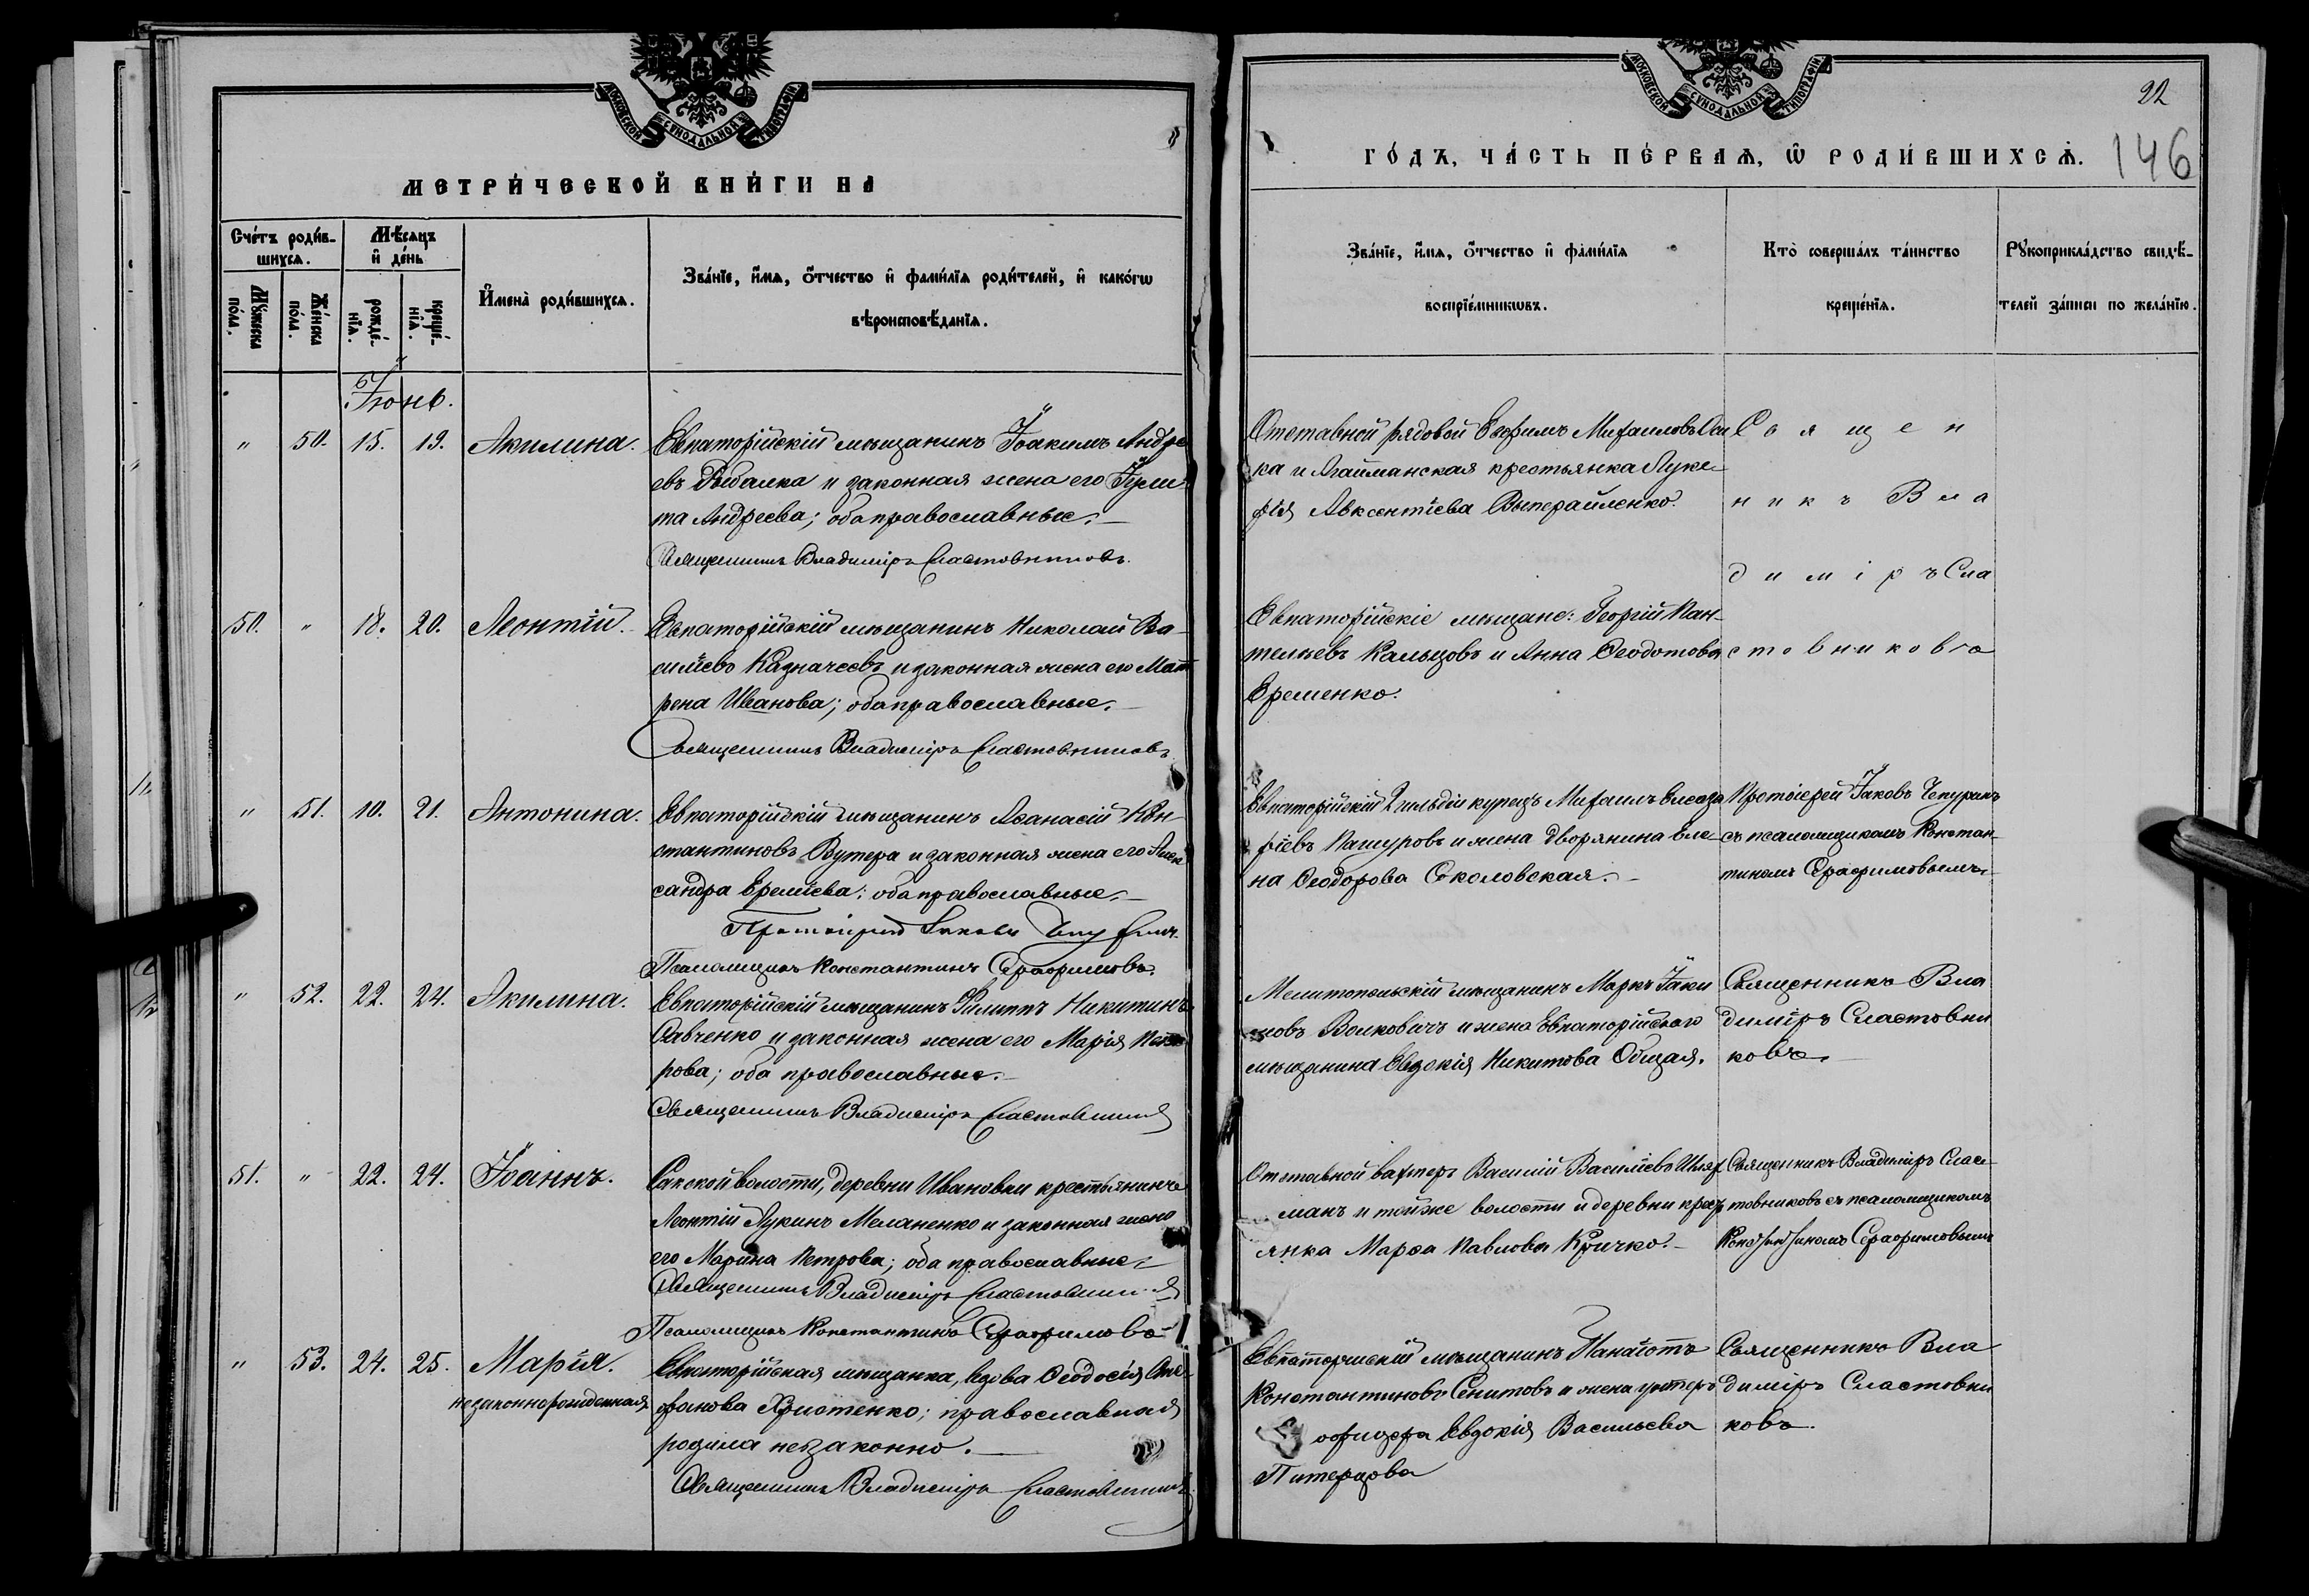 МОСКОВСКОЙ СѴНОДАЛЬНОЙ ТИПОГРАФІИ
МЕТРИ́ЧЕСКОЙ КНИ́ГИ НА
Сче́тъ роди́в-
шихся.
Мѣ́сяцъ
и҆ де́нь
Мꙋ́жеска
по́ла.
Же́нска
по́ла.
рожде́-
нїѧ.
креще́-
нїѧ.
И҆мена̀ роди́вшихсѧ.
Зва́нїе, и҆́мѧ, ѻ҆́тчество и҆ фами́лїѧ роди́телей, и҆ како́гѡ
вѣроисповѣ́данїѧ.
Іюнь.
" 50. 15. 19. Акилина.
Евпаторійскій мѣщанинъ Іоакимъ Андре
евъ Рыбалка и законная жена его
та Андреева; оба православные.
Священникъ Владиміръ Сластовниковъ.
50. " 18. 20. Леонтій.
Евпаторійскій мѣщанинъ Николай Ва-
силіевъ Казначеевъ и законная жена его Мат
рена Иванова; оба православные.
Священникъ Владиміръ Сластовниковъ
" 51. 10. 21. Антонина.
Евпаторійскій мѣщанинъ Аѳанасій Кон-
стантиновъ Вутера и законная жена его Алек
сандра Ереміева; оба православные.
Протоіерей Іаковъ
Псаломщикъ Константинъ Серафимовъ.
" 52. 22. 24. Акилина.
Евпаторійскій мѣщанинъ Филиппъ Никитинъ
Савченко и законная жена его Марія Пет
рова; оба православные.
Священникъ Владиміръ Сластовниковъ
51. " 22. 24. Іоаннъ.
Сакской волости, деревни Ивановки крестьянинъ
Леонтій Лукинъ Меланенко и законная жена
его Марина Петрова; оба православные
Священникъ Владиміръ Сластовниковъ
Псаломщикъ Константинъ Серафимовъ
" 53. 24. 25. Марія.
незаконнорожденная
Евпаторійская мѣщанка, вдова Ѳеодосія Сте-
фанова Христенко; православная
родила незаконно.
Священникъ Владиміръ Сластовниковъ
МОСКОВСКОЙ СѴНОДАЛЬНОЙ ТИПОГРАФІИ
22
ГО́ДЪ, ЧА́СТЬ ПЕ́РВАѦ, Ѡ҆ РОДИ́ВШИХСѦ. 146
Зва́нїе, и҆́мѧ, ѻ҆́тчество и҆ фами́лїѧ
воспрїе́мникѡвъ.
Кто̀ соверша́лъ та́инство
креще́нїѧ.
Рꙋкоприкла́дство свидѣ́-
телей за́писи по жела́нїю.
Отставной рядовой Ефимъ Михаиловъ
ка и Агайманская крестьянка Луке-
рія Авксентіева
С в я щ е н
н и к ъ В л а
д и м і р ъ Сла
Евпаторійскіе мѣщане: Георгій Пан-
телѣевъ Кальцовъ и Анна Ѳеодотова
Еременко.
с т о в н и к о в ъ
Евпаторійскій 2 гильдіи купецъ Михаилъ Елеаза
ріевъ Пашуровъ и жена дворянина Еле-
на Ѳеодорова Соколовская.
Протоіерей Іаковъ Чепуринъ
съ псаломщикомъ Констан-
тиномъ Серафимовымъ
Мелитопольскій мѣщанинъ Маркъ Іаки
мовъ Волковичъ и жена Евпаторійскаго
мѣщанина Евдокія Никитова Общая.
Священникъ Вла
диміръ Сластовни
ковъ.
Отставной вахтеръ Василій Василіевъ
манъ и той же волости и деревни крест
янка Марѳа Павлова Кричко.
Священникъ Владиміръ Слас-
товниковъ съ псаломщикомъ
Константиномъ Серафимовымъ
Евпаторійскій мѣщанинъ Панаіотъ
Константиновъ Сенитовъ и жена унтеръ
офицера Евдокія Васильева
Питерцова
Священникъ Вла
диміръ Сластовни
ковъ.